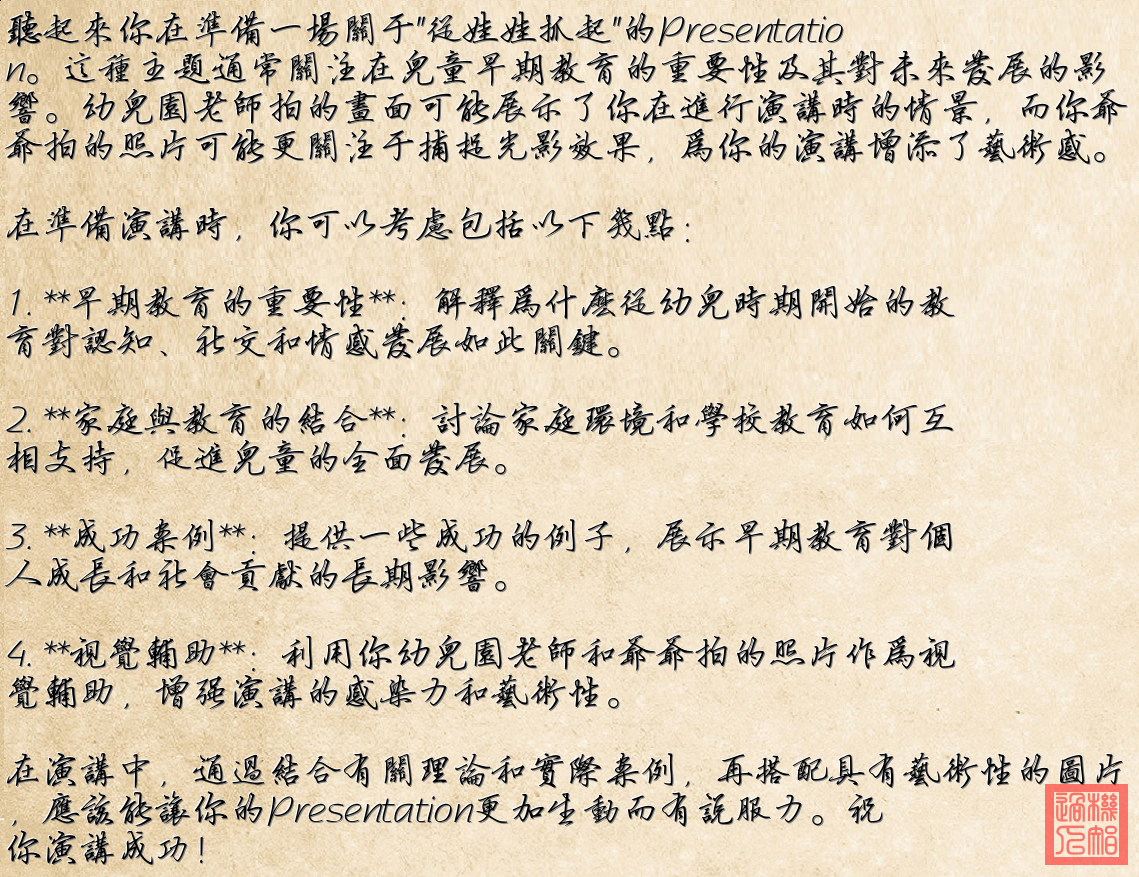 聽起來你在準備一場關于"從娃娃抓起"的Presentatio
n。這種主題通常關注在兒童早期教育的重要性及其對未來發展的影
響。幼兒園老師拍的畫面可能展示了你在進行演講時的情景，而你爺
爺拍的照片可能更關注于捕捉光影效果，爲你的演講增添了藝術感。
在準備演講時，你可以考慮包括以下幾點：
1. **早期教育的重要性**：解釋爲什麽從幼兒時期開始的教
育對認知、社交和情感發展如此關鍵。
2. **家庭與教育的結合**：討論家庭環境和學校教育如何互
相支持，促進兒童的全面發展。
3. **成功案例**：提供一些成功的例子，展示早期教育對個
人成長和社會貢獻的長期影響。
4. **視覺輔助**：利用你幼兒園老師和爺爺拍的照片作爲視
覺輔助，增强演講的感染力和藝術性。
在演講中，通過結合有關理論和實際案例，再搭配具有藝術性的圖片
，應該能讓你的Presentation更加生動而有説服力。祝
你演講成功！